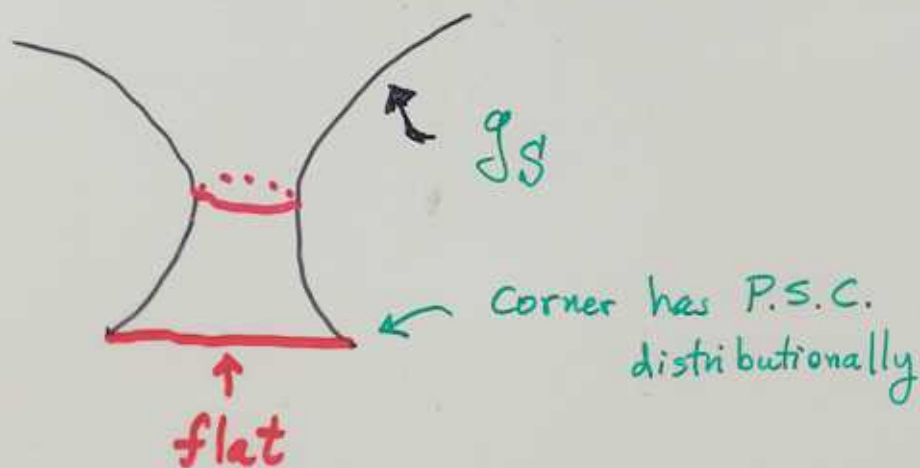 gS
Corner has P.S.C.
distributionally
flat